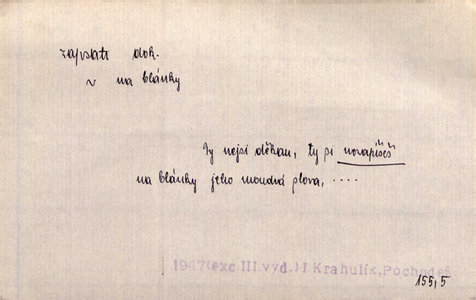 zapsati dok.
v na blánky
Ty nejsi děkan, ty si nevapíšeš
na blánky jeho moudrá slova, ....
1947(exc III.vyd.)I Krahulík, Pochodeň
155,5